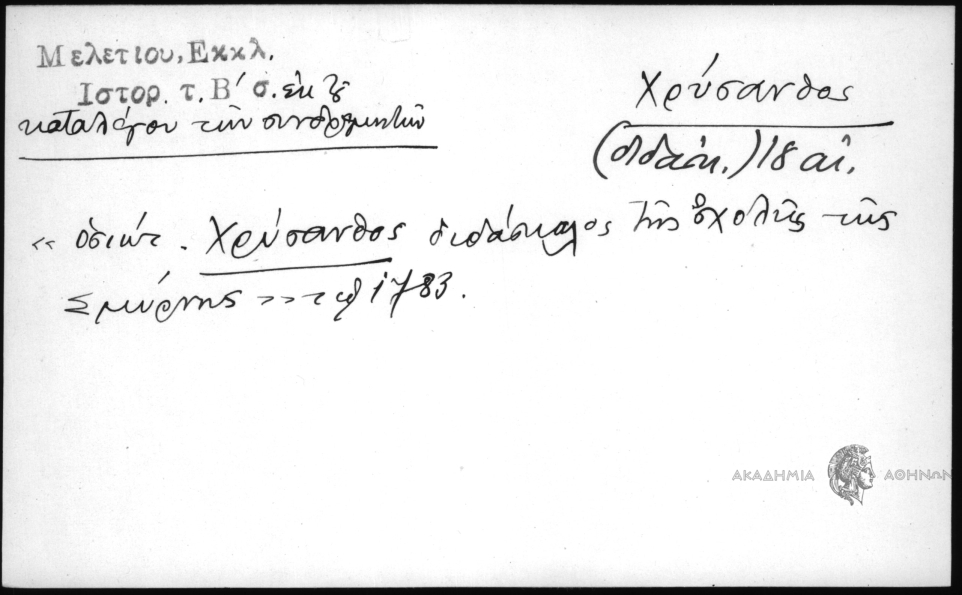 Μελετίου, Εκκλ.
Ιστορ. τ. Β΄ σ. ἐκ τοῦ
καταλόγου τῶν συνδρομητῶν
Χρύσανθος
(διδάσκ.) 18 αἰ.
« ὁσιώτ. Χρύσανθος διδάσκαλος τῆς σχολῆς τῆς
Σμύρνης »
1783.
ΑΚΑΔΗΜΙΑ ΑΘΗΝΩΝ